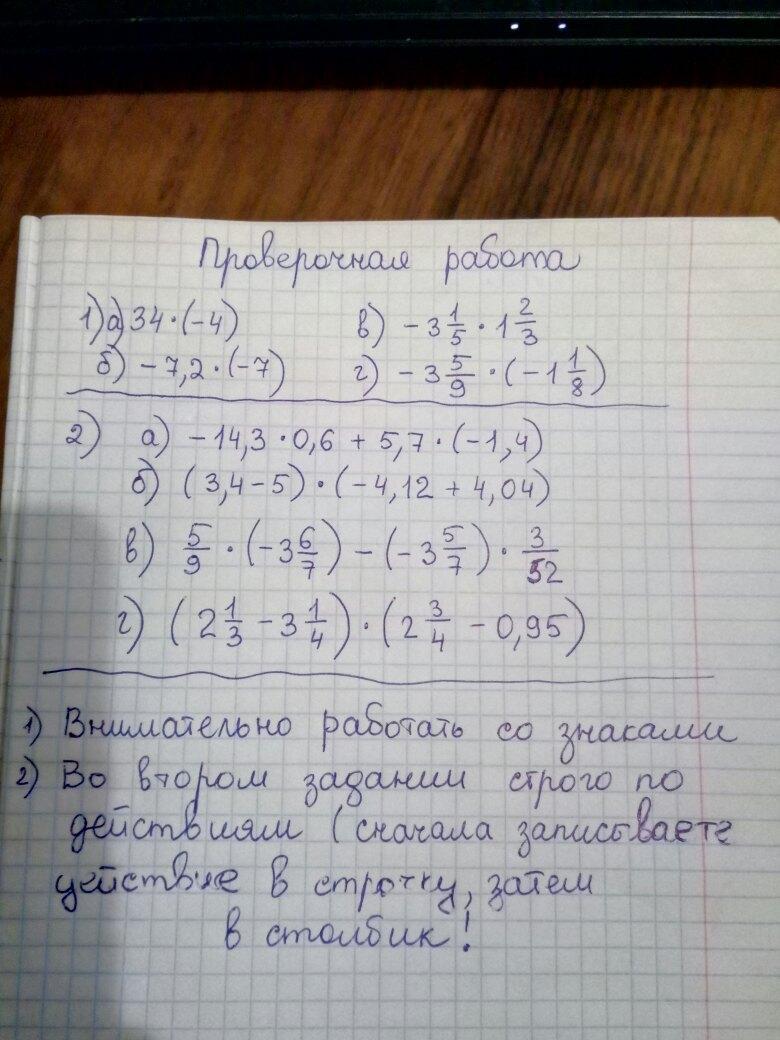 Проверочная работа
1) а) 34 · (-4)   в) -3 1/5 · 1 2/3
б) -7,2 · (-7)   г) -3 5/9 · (-1 1/8)
2) а) -14,3 · 0,6 + 5,7 · (-1,4)
б) (3,4 - 5) · (-4,12 + 4,04)
в) 5/9 · (-3 6/7) - (-3 5/7) · 3/52
г) (2 1/3 - 3 1/4) · (2 3/4 - 0,95)
1) Внимательно работать со знаками
2) Во втором задании строго по
действиям (сначала записываете
действие в строчку, затем
в столбик!